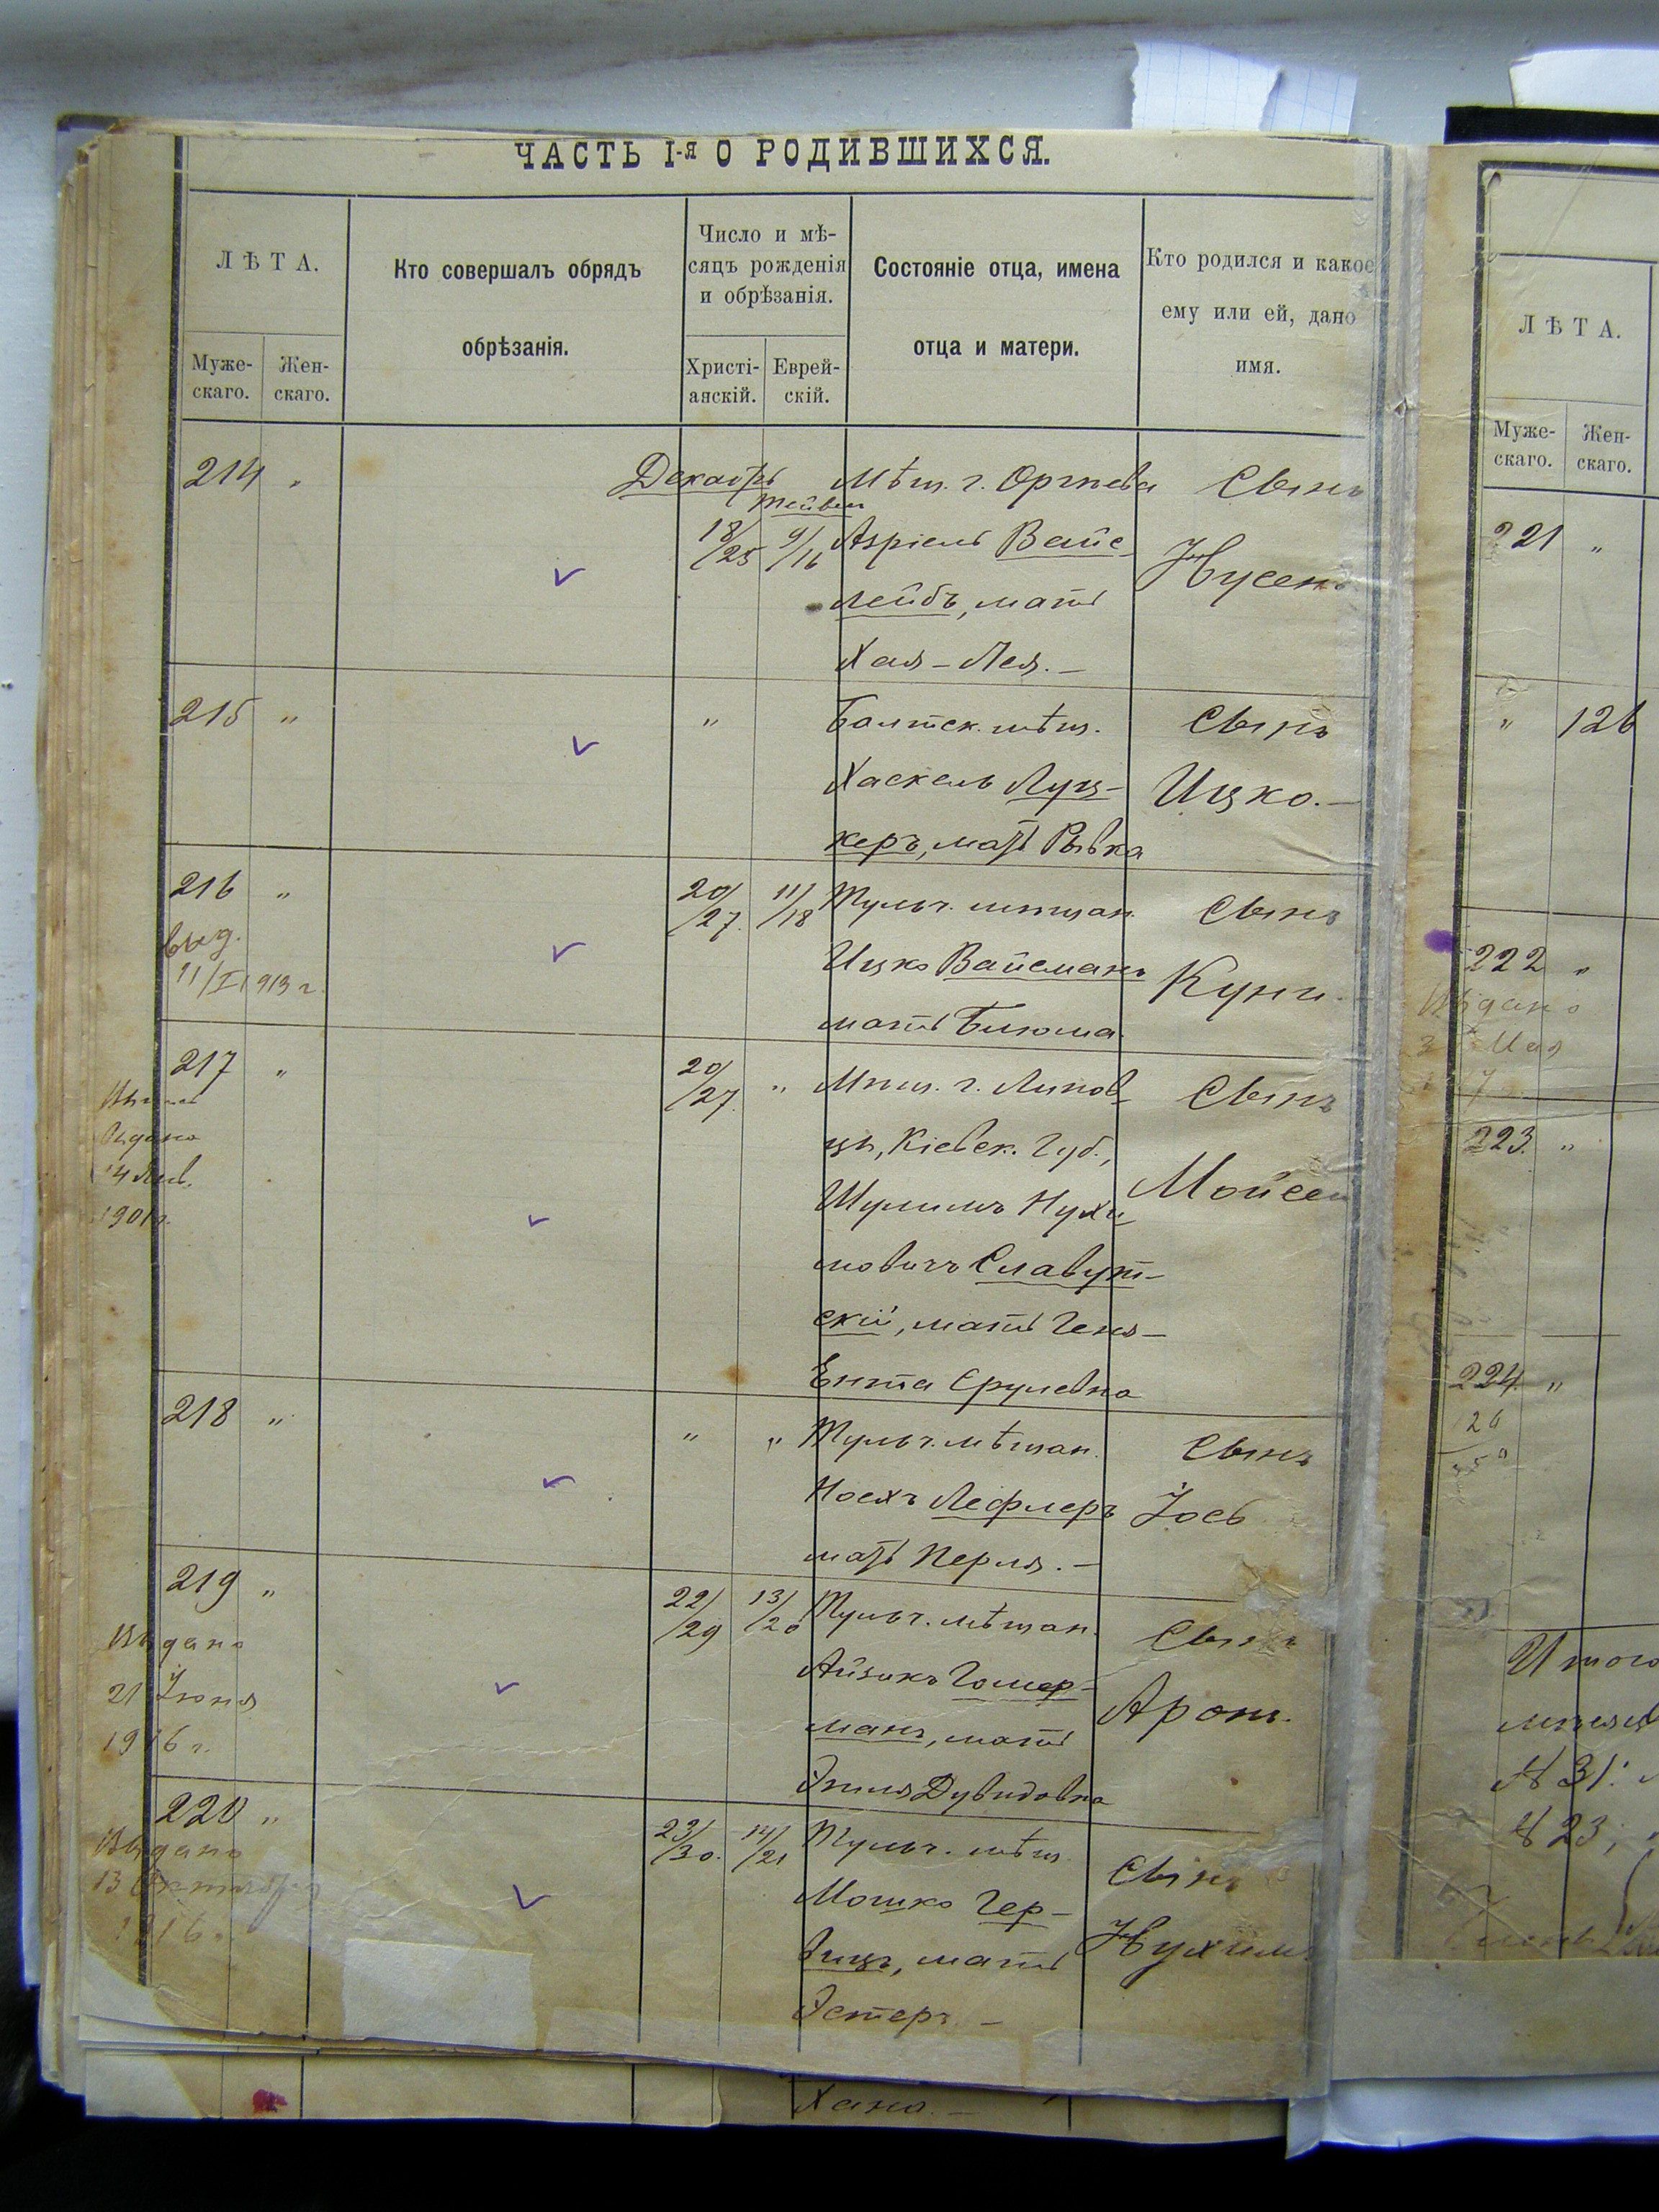 ЧАСТЬ I-я О РОДИВШИХСЯ.
ЛѢТА.
Муже-
скаго.
Жен-
скаго.
Кто совершалъ обрядъ
обрѣзанія.
Число и мѣ-
сяцъ рожденія
и обрѣзанія.
Христі-
анскій.
Еврей-
скій.
Состояніе отца, имена
отца и матери.
Кто родился и какое
ему или ей, дано
имя.
214 "
Декабрь
Тейвес
18/25 9/16
Мѣщ. г. Оргѣева
Азріель Вайс
лейбъ, мать
Хая-Лея. -
Сынъ
Нусенъ
215 " "
Балтск. мѣщ.
Хаскель Луц-
керъ, мать Рывка
Сынъ
Ицко. -
216 "
выд.
11/I 1913 г.
20/27. 11/18
Тульч. мѣщан.
Ицко Вайсманъ
мать Блюма.
Сынъ
Куни
217 "
Выдана
14 Янв.
1901 г.
20/27. "
Мѣщ. г. Липов-
цы, Кіевск. Губ.,
Шулимъ Нухи
мовичъ Славут-
скій, мать Геня-
Ента Срулевна
Сынъ
Мойсей
218 " " "
Тульч. мѣщан.
Носехъ Лефлеръ
мать Перля. -
Сынъ
Іось
219 "
Выдано
21 Іюня
1916 г.
22/29 13/20
Тульч. мѣщан.
Айзикъ Гомер-
манъ, мать
Этля Дувидовна
Сынъ
Аронъ.
220 "
Выдано
13 Октября
1916 г.
23/30. 14/21
Тульч. мѣщ.
Мошко Гер-
вицъ, мать
Эстеръ. -
Сынъ
Нухимъ
Хана. -
ЛѢТА.
Муже-
скаго.
Жен-
скаго.
221 "
" 126
222 "
Выдано
3 Мая
223. "
224. "
126
350
Итого
31:
23;